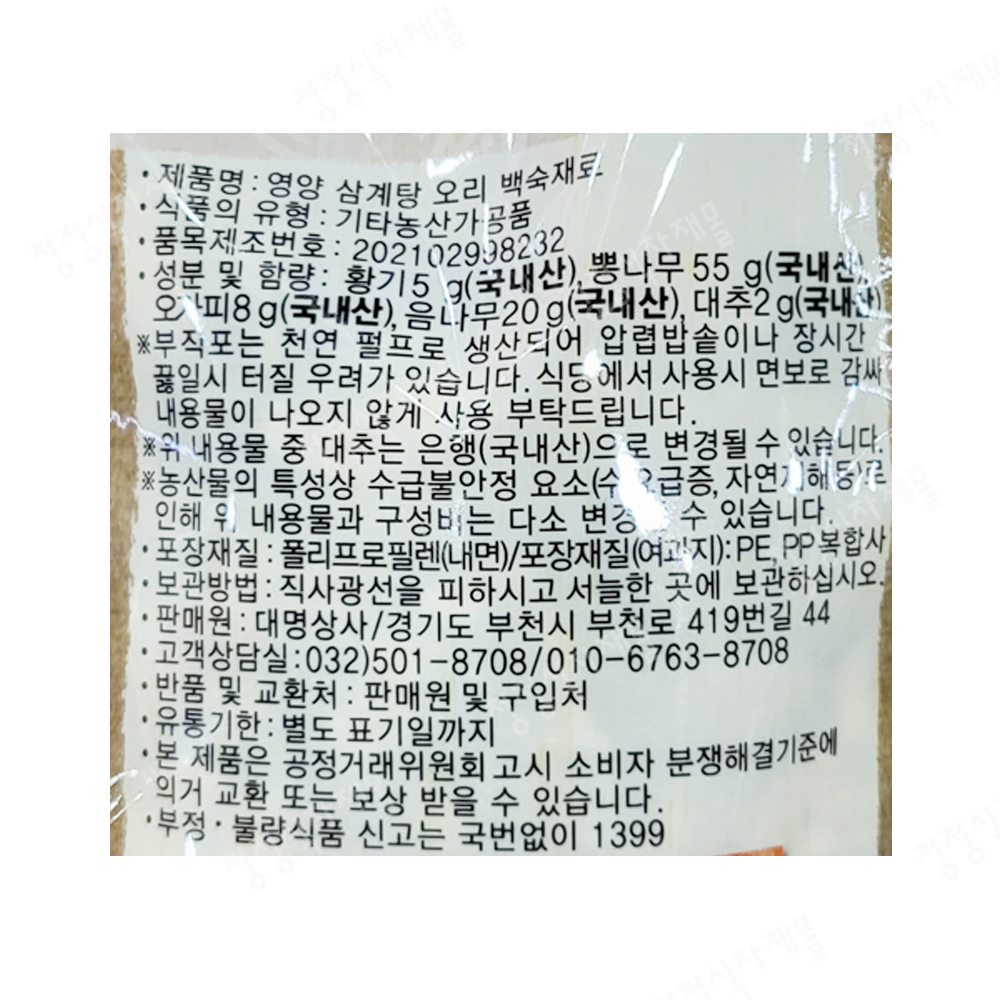 · 제품명 : 영양 삼계탕 오리 백숙재료
· 식품의 유형 : 기타농산가공품
· 품목제조번호 : 202102998232
· 성분 및 함량 : 황기5 g(국내산), 뽕나무 55 g(국내산),
오가피8 g(국내산), 음나무20 g(국내산), 대추2 g(국내산)
※부직포는 천연 펄프로 생산되어 압렵밥솥이나 장시간
끓일시 터질 우려가 있습니다. 식당에서 사용시 면보로 감싸
내용물이 나오지 않게 사용 부탁드립니다.
※위 내용물 중 대추는 은행(국내산)으로 변경될 수 있습니다.
※농산물의 특성상 수급불안정 요소(수요급증, 자연재해 등)로
인해 위 내용물과 구성비는 다소 변경 수 있습니다.
· 포장재질 : 폴리프로필렌(내면)/포장재질(여과지): PE, PP 복합사
· 보관방법 : 직사광선을 피하시고 서늘한 곳에 보관하십시오.
· 판매원 : 대명상사/경기도 부천시 부천로 419번길 44
· 고객상담실 : 032)501-8708/010-6763-8708
· 반품 및 교환처 : 판매원 및 구입처
· 유통기한 : 별도 표기일까지
· 본 제품은 공정거래위원회 고시 소비자 분쟁해결기준에
의거 교환 또는 보상 받을 수 있습니다.
· 부정 · 불량식품 신고는 국번없이 1399
청정식자재몰